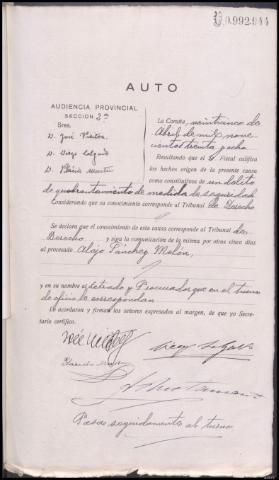 0.992.944
AUTO
AUDIENCIA PROVINCIAL
SECCION 2ª
Sres.
D. José
D. Diego Salgado
D. Martín
La Coruña, veinticinco de
Abril de mil nove-
cientos treinta y ocho
Resultando que el Fiscal califica
los hechos origen de la presente causa
como constitutivos de un delito
de quebrantamiento de medida de seguridad
Considerando que su conocimiento corresponde al Tribunal de Derecho
Se declara que el conocimiento de esta causa corresponde al Tribunal de
Derecho y siga la comunicación de la misma por otros cinco días
al procesado Alejo Sánchez Melón,
y en su nombre al Letrado y Procurador que en el turno
de oficio le correspondan
Lo acordaron y firman los señores expresados al margen, de que yo Secre-
tario certifico.
Pasa seguidamente al turno